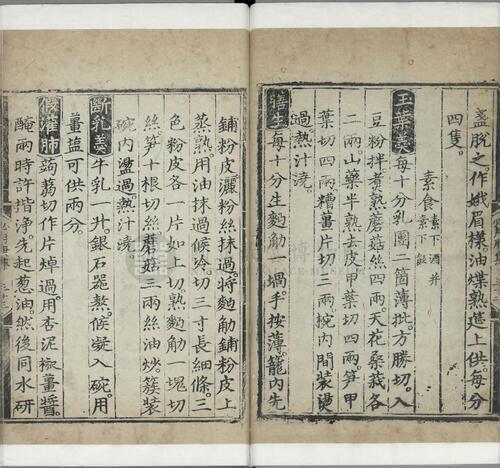 盞脫之作娥眉樣油煠熟筵上供每分
四隻
素食 素下酒并素下飯
玉葉羹 每十分乳團二箇薄批方勝切入
豆粉拌煮熟蘑菇絲四兩天花桑莪各
二兩山藥半熟去皮甲葉切四兩笋甲
葉切四兩糟薑片切三兩椀內間裝燙
過熱汁澆
膳生 每十分生麪觔一堝手按薄籠內先
鋪粉皮灑粉絲抹過將麪觔鋪粉皮上
蒸熟用油抹過候冷切三寸長細條三
色粉皮各一片如上切熟麪觔一塊切
絲笋十根切絲蘑菇三兩絲油炒簇裝
碗內盪過熱汁澆
斷乳羹 牛乳一升銀石器熬候凝入碗用
薑塩可供兩分
假灌肺 蒟蒻切作片焯過用杏泥椒薑醬
醃兩時許揩淨先起葱油然後同水研